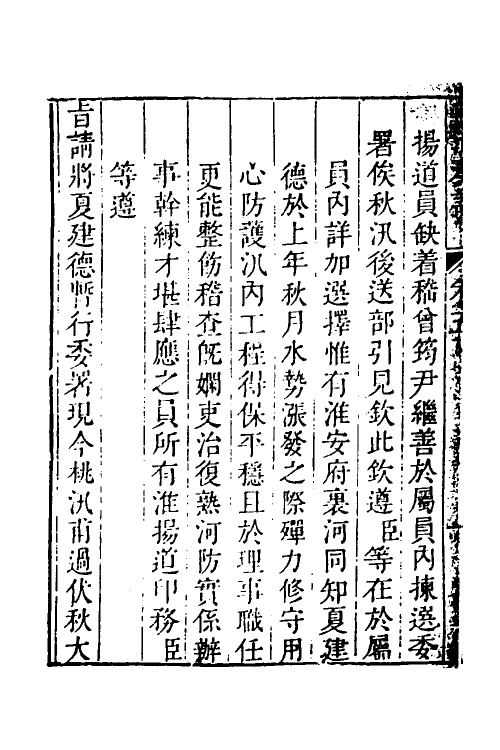 揚道員缺着嵇曾筠尹繼善於屬員內揀選委
署俟秋汛後送部引見欽此欽遵臣等在於屬
員內詳加選擇惟有淮安府裏河同知夏建
德於上年秋月水勢漲發之際殫力修守用
心防護汛內工程得保平穩且於理事職任
更能整飭稽查旣嫻吏治復熟河防實係辦
事幹練才堪肆應之員所有淮揚道印務臣
等遵
旨請將夏建德暫行委署現今桃汛甫過伏秋大